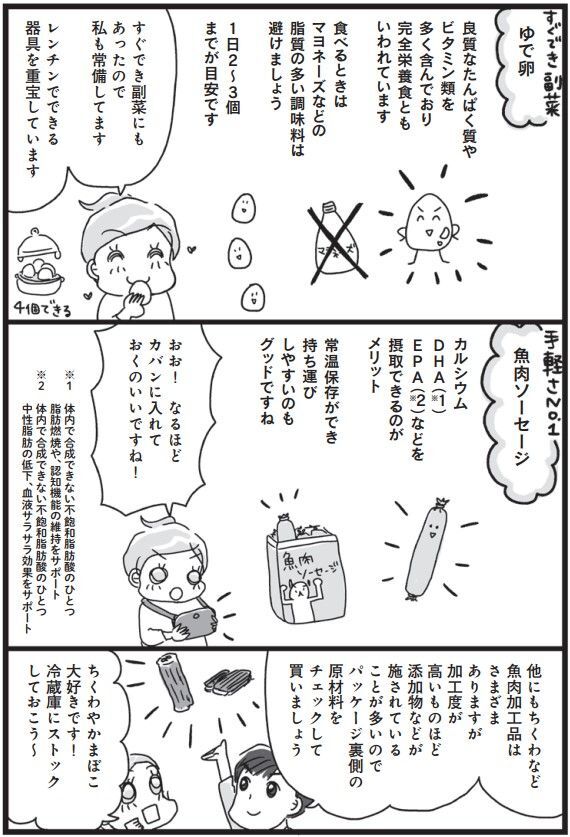 すぐでき副菜
ゆで卵
良質なたんぱく質や
ビタミン類を
多く含んでおり
完全栄養食とも
いわれています
食べるときは
マヨネーズなどの
脂質の多い調味料は
避けましょう
1日2〜3個
までが目安です
マヨネーズ
すぐでき副菜にも
あったので
私も常備してます
レンチンでできる
器具を重宝しています
4個できる
手軽さNo.1
魚肉ソーセージ
カルシウム
DHA(※1)
EPA(※2)などを
摂取できるのが
メリット
常温保存ができ
持ち運び
しやすいのも
グッドですね
魚肉
ソーセージ
おお! なるほど
カバンに入れて
おくのいいですね!
※1 体内で合成できない不飽和脂肪酸のひとつ
脂肪燃焼や、認知機能の維持をサポート
※2 体内で合成できない不飽和脂肪酸のひとつ
中性脂肪の低下、血液サラサラ効果をサポート
他にもちくわなど
魚肉加工品は
さまざま
ありますが
加工度が
高いものほど
添加物などが
施されている
ことが多いので
パッケージ裏側の
原材料を
チェックして
買いましょう
ちくわやかまぼこ
大好きです!
冷蔵庫にストック
しておこう〜